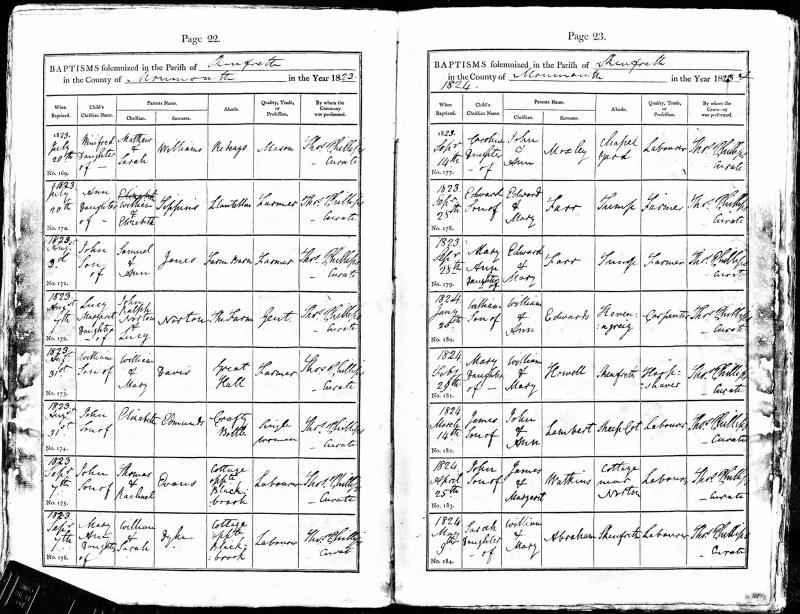 Page 22.
BAPTISMS solemnized in the Parish of Skenfreth
in the County of Monmouth in the Year 1823
When Baptized. Child's Christian Name. Parents Name. Christian. Surname. Abode. Quality, Trade, or Profession. By whom the Ceremony was performed.
1823. July 20th No. 169. Winifred Daughter of Mathew & Sarah Williams Mason Thos. Phillips Curate
1823 July 20th No. 170. Ann Daughter of William & Elizabeth Toppins Llantellen Farmer Thos. Phillips Curate
1823 Augst 3d No. 171. John Son of Samuel & Ann Jones Farm Barn Farmer Thos. Phillips Curate
1823 Augst 7th No. 172. Lucy Margaret Daughter of John Ralph Norton & Lucy Norton The Farm Gent. Thos. Phillips Curate
1823 Augst 31st No. 173. William Son of William & Mary Davis Great Hall Farmer Thos. Phillips Curate
1823 Augst 31st No. 174. John Son of Elizabeth Edmunds Crafty Bottle Single woman Thos. Phillips Curate
1823 Sepr 7th No. 175. John Son of Thomas & Rachael Evans Cottage oppte Blackbrook Labourer Thos. Phillips Curate
1823 Sepr 7th No. 176. Mary Ann Daughter of William & Sarah Dyke Cottage oppte Blackbrook Labourer Thos. Phillips Curate
Page 23.
BAPTISMS solemnized in the Parish of Skenfreth
in the County of Monmouth in the Year 1823 &
1824.
When Baptized. Child's Christian Name. Parents Name. Christian. Surname. Abode. Quality, Trade, or Profession. By whom the Ceremony was performed.
1823. Sepr 14th No. 177. Caroline Daughter of John & Ann Moxley Chapel yard Labourer Thos. Phillips Curate
1823. Sepr 28th No. 178. Edward Son of Edward & Mary Farr Tump Farmer Thos. Phillips Curate
1823 Sepr 28th No. 179. Mary Ann Daughter of Edward & Mary Farr Tump Farmer Thos. Phillips Curate
1824 Jany No. 180. William Son of William & Ann Edwards Carpenter Thos. Phillips Curate
1824 Feby 29th No. 181. Mary Daughter of William & Mary Howell Skenfreth Hoop-shaver Thos. Phillips Curate
1824 March 14th No. 182. James Son of John & Ann Lambert Sheep Cot Labourer Thos. Phillips Curate
1824 April 25th No. 183. John Son of James & Margaret Watkins Cottage near Norton Labourer Thos. Phillips Curate
1824 May 9th No. 184. Sarah Daughter of William & Mary Abraham Skenfreth Labourer Thos. Phillips Curate